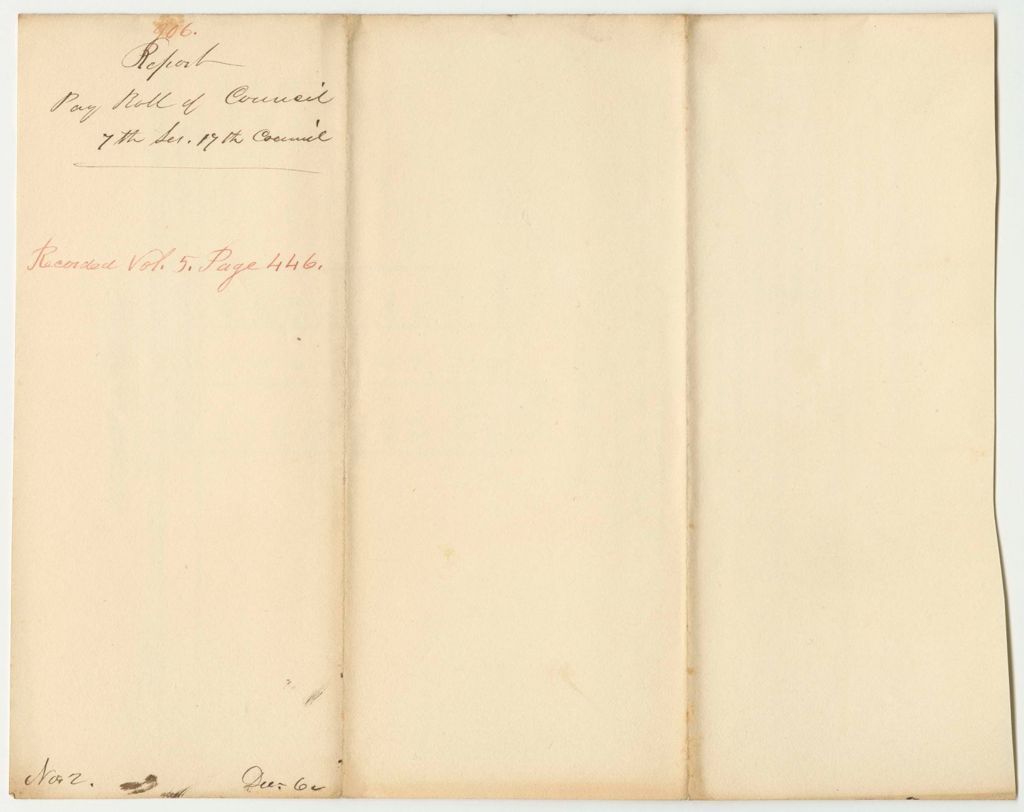 906.
Report
Pay Roll of Council
7th Ses. 17th Council
Recorded Vol. 5. Page 446.
No 2.